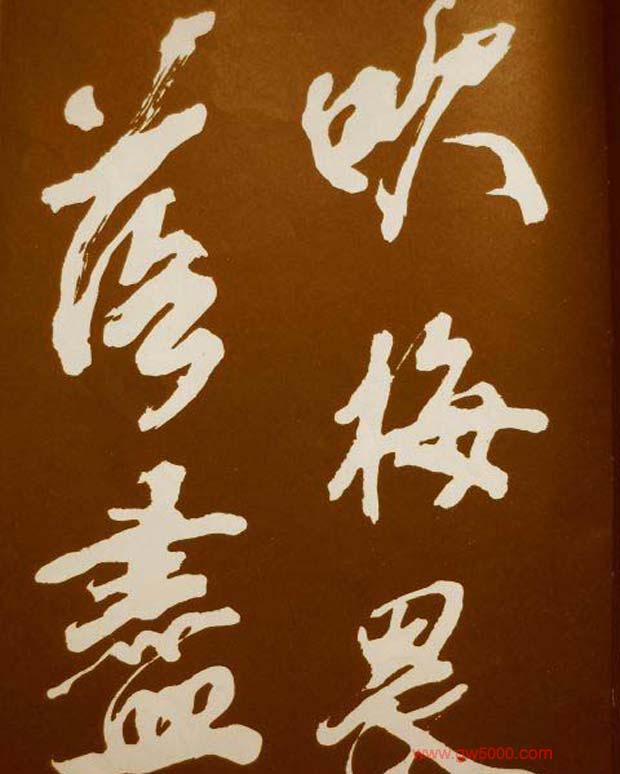 吹梅畏
落盡
www.gw5000.com